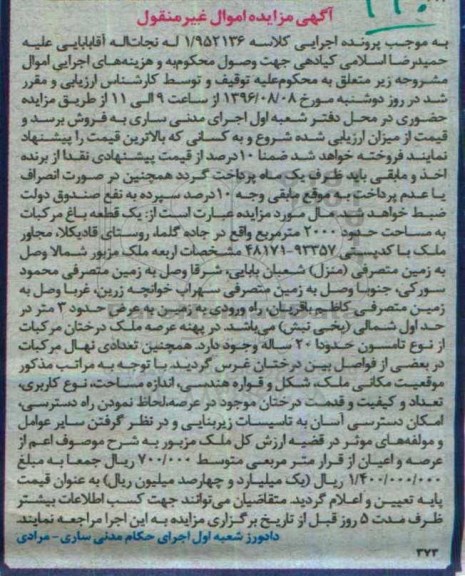 آگهی مزایده اموال غیرمنقول
به موجب پرونده اجرایی کلاسه ۱/۹۵۲۱۳۶ له نجات‌اله آقابابایی علیه
حمیدرضا سلامی کیادهی جهت وصول محکوم‌به و هزینه‌های اجرایی اموال
مشروحه زیر متعلق به محکوم‌علیه توقیف و توسط کارشناس ارزیابی و مقرر
شد در روز دوشنبه مورخ ۱۳۹۶/۰۸/۰۸ از ساعت ۹ الی ۱۱ از طریق مزایده
حضوری در محل دفتر شعبه اول اجرای مدنی ساری به فروش برسد و
قیمت از میزان ارزیابی شده شروع و به کسانی که بالاترین قیمت را پیشنهاد
نمایند فروخته خواهد شد ضمنا ۱۰درصد از قیمت پیشنهادی نقدا از برنده
اخذ و مابقی باید ظرف یک ماه پرداخت گردد همچنین در صورت انصراف
یا عدم پرداخت به موقع مابقی وجه ۱۰درصد سپرده به نفع صندوق دولت
ضبط خواهد شد. مال مورد مزایده عبارت است از: یک قطعه باغ مرکبات
به مساحت حدود ۲۰۰۰ مترمربع واقع در جاده گلما، روستای قادیکلا، مجاور
ملک با کدپستی ۹۳۳۵۷-۴۸۱۷۱ مشخصات اربعه ملک مزبور شمالا وصل
به زمین متصرفی (منزل) شعبان بابایی، شرقا وصل به زمین متصرفی محمود
سورکی، جنوبا وصل به زمین متصرفی سهراب خوانچه زرین، غربا وصل به
زمین متصرفی کاظم باقریان، راه ورودی به زمین به عرض حدود ۳ متر در
حد اول شمالی (بخی نبش) می‌باشد. در پهنه عرصه ملک درختان مرکبات
از نوع تامسون حدودا ۲۰ ساله وجود دارد. همچنین تعدادی نهال مرکبات
در بعضی از فواصل بین درختان غرس گردید. با توجه به مراتب مذکور
موقعیت مکانی ملک، شکل و قواره هندسی، اندازه مساحت، نوع کاربری،
تعداد و کیفیت و قدمت درختان موجود در عرصه، لحاظ نمودن راه دسترسی،
امکان دسترسی آسان به تاسیسات زیربنایی و در نظر گرفتن سایر عوامل
و مولفه‌های موثر در قضیه ارزش کل ملک مزبور به شرح موصوف اعم از
عرصه و اعیان از قرار متر مربعی متوسط ۷۰۰/۰۰۰ ریال جمعا به مبلغ
۱/۴۰۰/۰۰۰/۰۰۰ ریال (یک میلیارد و چهارصد میلیون ریال) به عنوان قیمت
پایه تعیین و اعلام گردید. متقاضیان می‌توانند جهت کسب اطلاعات بیشتر
ظرف مدت ۵ روز قبل از تاریخ برگزاری مزایده به این اجرا مراجعه نمایند.
دادورز شعبه اول اجرای احکام مدنی ساری - مرادی
۳۷۳